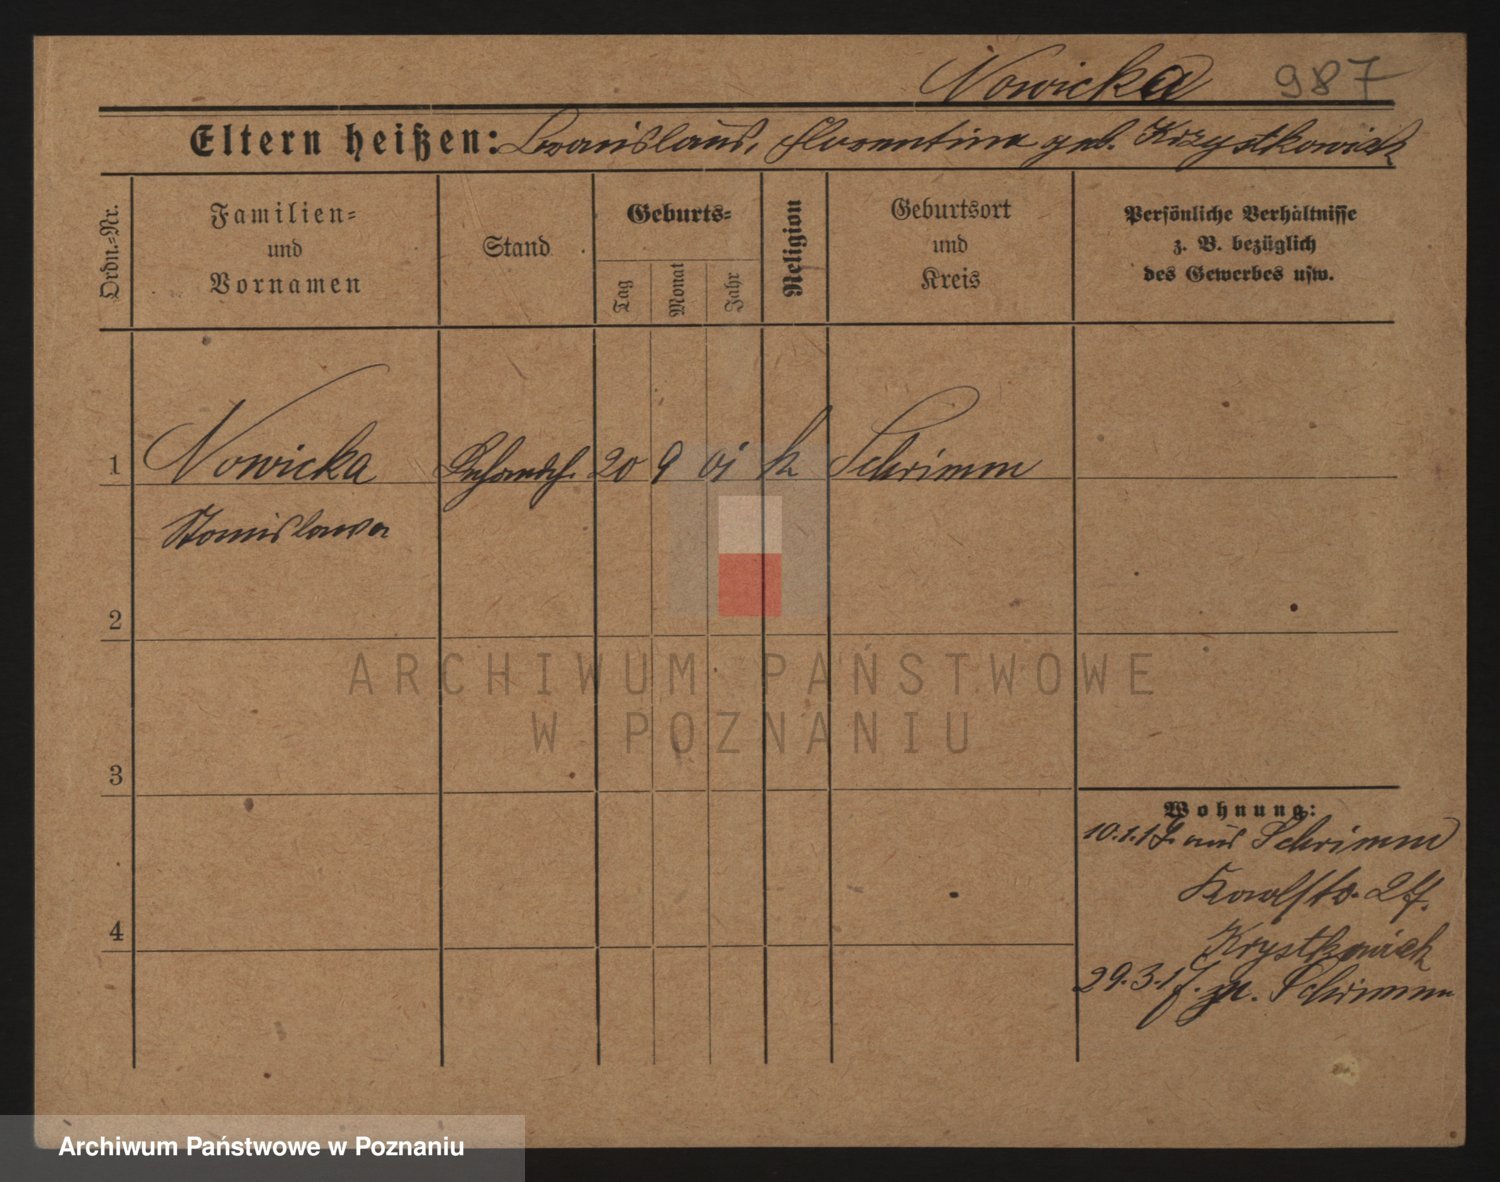 Nowicka 987
Eltern heißen: Bronislaus, Florentina geb. Krzystkowiak
Ordn.-Nr.
Familien-
und
Vornamen
Stand
Geburts-
Tag
Monat
Jahr
Religion
Geburtsort
und
Kreis
Persönliche Verhältnisse
z. B. bezüglich
des Gewerbes usw.
1 Nowicka 20 9 01 k Schrimm
Stanislawa
2
3
4
Wohnung:
10.1.17. aus Schrimm
27.
Krystkowiak
29.3.17. zu. Schrimm
ARCHIWUM PAŃSTWOWE
W POZNANIU
Archiwum Państwowe w Poznaniu